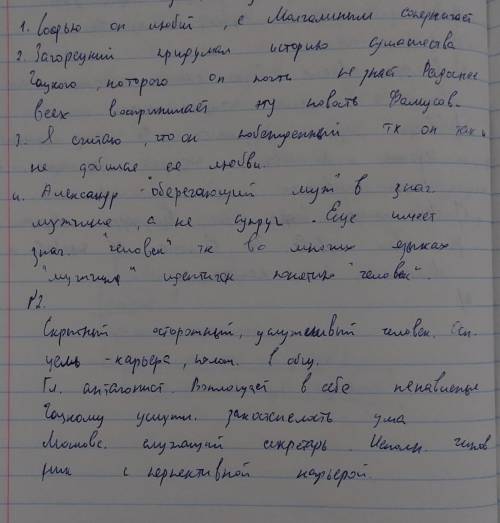 1. Софью он любит, с Малчалиным соперничает
2. Загорецкий придумал историю сумашества
Чацкого, которого он почти не знает. Радостнее
всех воспринимает эту новость Фамусов.
3. Я считаю, что он побежденный тк он так и
не добился ее любви.
4. Александр "оберегающий муж" в знач.
мужчине, а не супруг. Еще имеет
знач. "человек" тк во многих языках
"мужчина" идентичен понятию "человек".
№2.
Скрытный осторожный, услужливый человек.
цель - карьера, полож. в общ.
Гл. антагонист. Воплощает в себе ненавистные
Чацкому услужл. закостнелость ума
Молчал. служащий секретарь. Исполн. чинов
ник с перспективной карьерой.